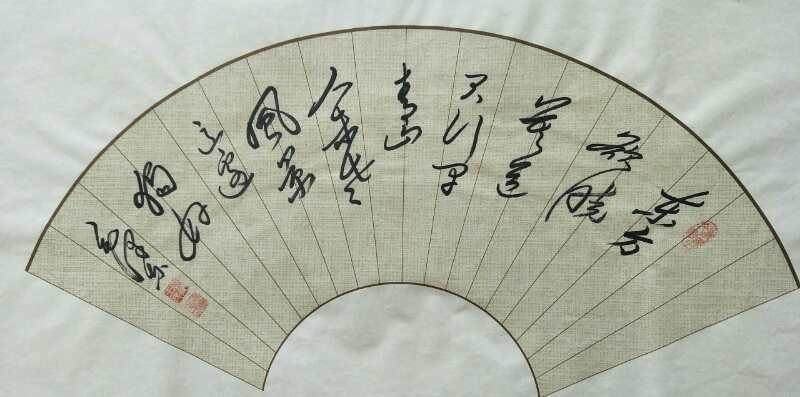 东方
欲晓
莫道
君行早
青山
人未老
風景
这边
独好